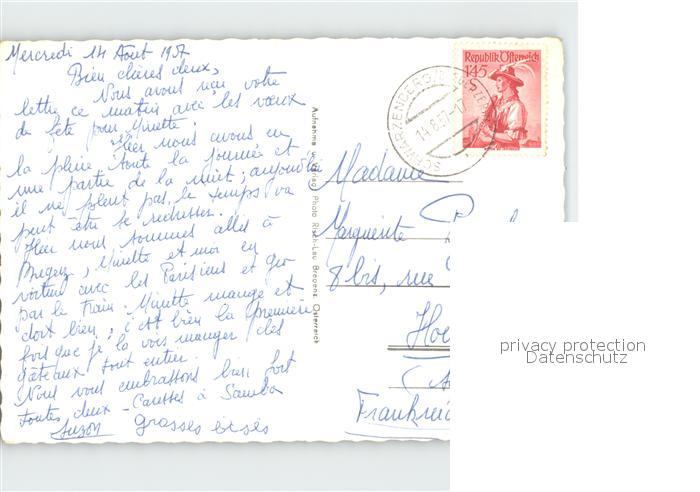 Mercredi 14 Aout 1957
Bien chères deux,
Nous avons reçu votre
lettre ce matin avec les vœux
de fête pour Minette.
Hier nous avons eu
la pluie toute la journée et
une partie de la nuit; aujourd'hui
il ne pleut pas, le temps va
peut être se redresser.
Hier nous sommes allés à
Bregenz, Minette et moi en
voiture avec les Parisiens et
par le train. Minette mange et
dort bien, c'est bien la première
fois que je la vois manger des
gâteaux tout entier.
Nous vous embrassons bien fort
toutes deux - Caresses à Samba
Suzon grosses bises
Aufnahme u. Verlag Photo Risch-Lau Bregenz, Österreich
Republik Österreich
1.45 S
SCHWARZENBERG
14.8.57-17
Madame
Marguerite
8 bis, rue
Frankreich
privacy protection
Datenschutz